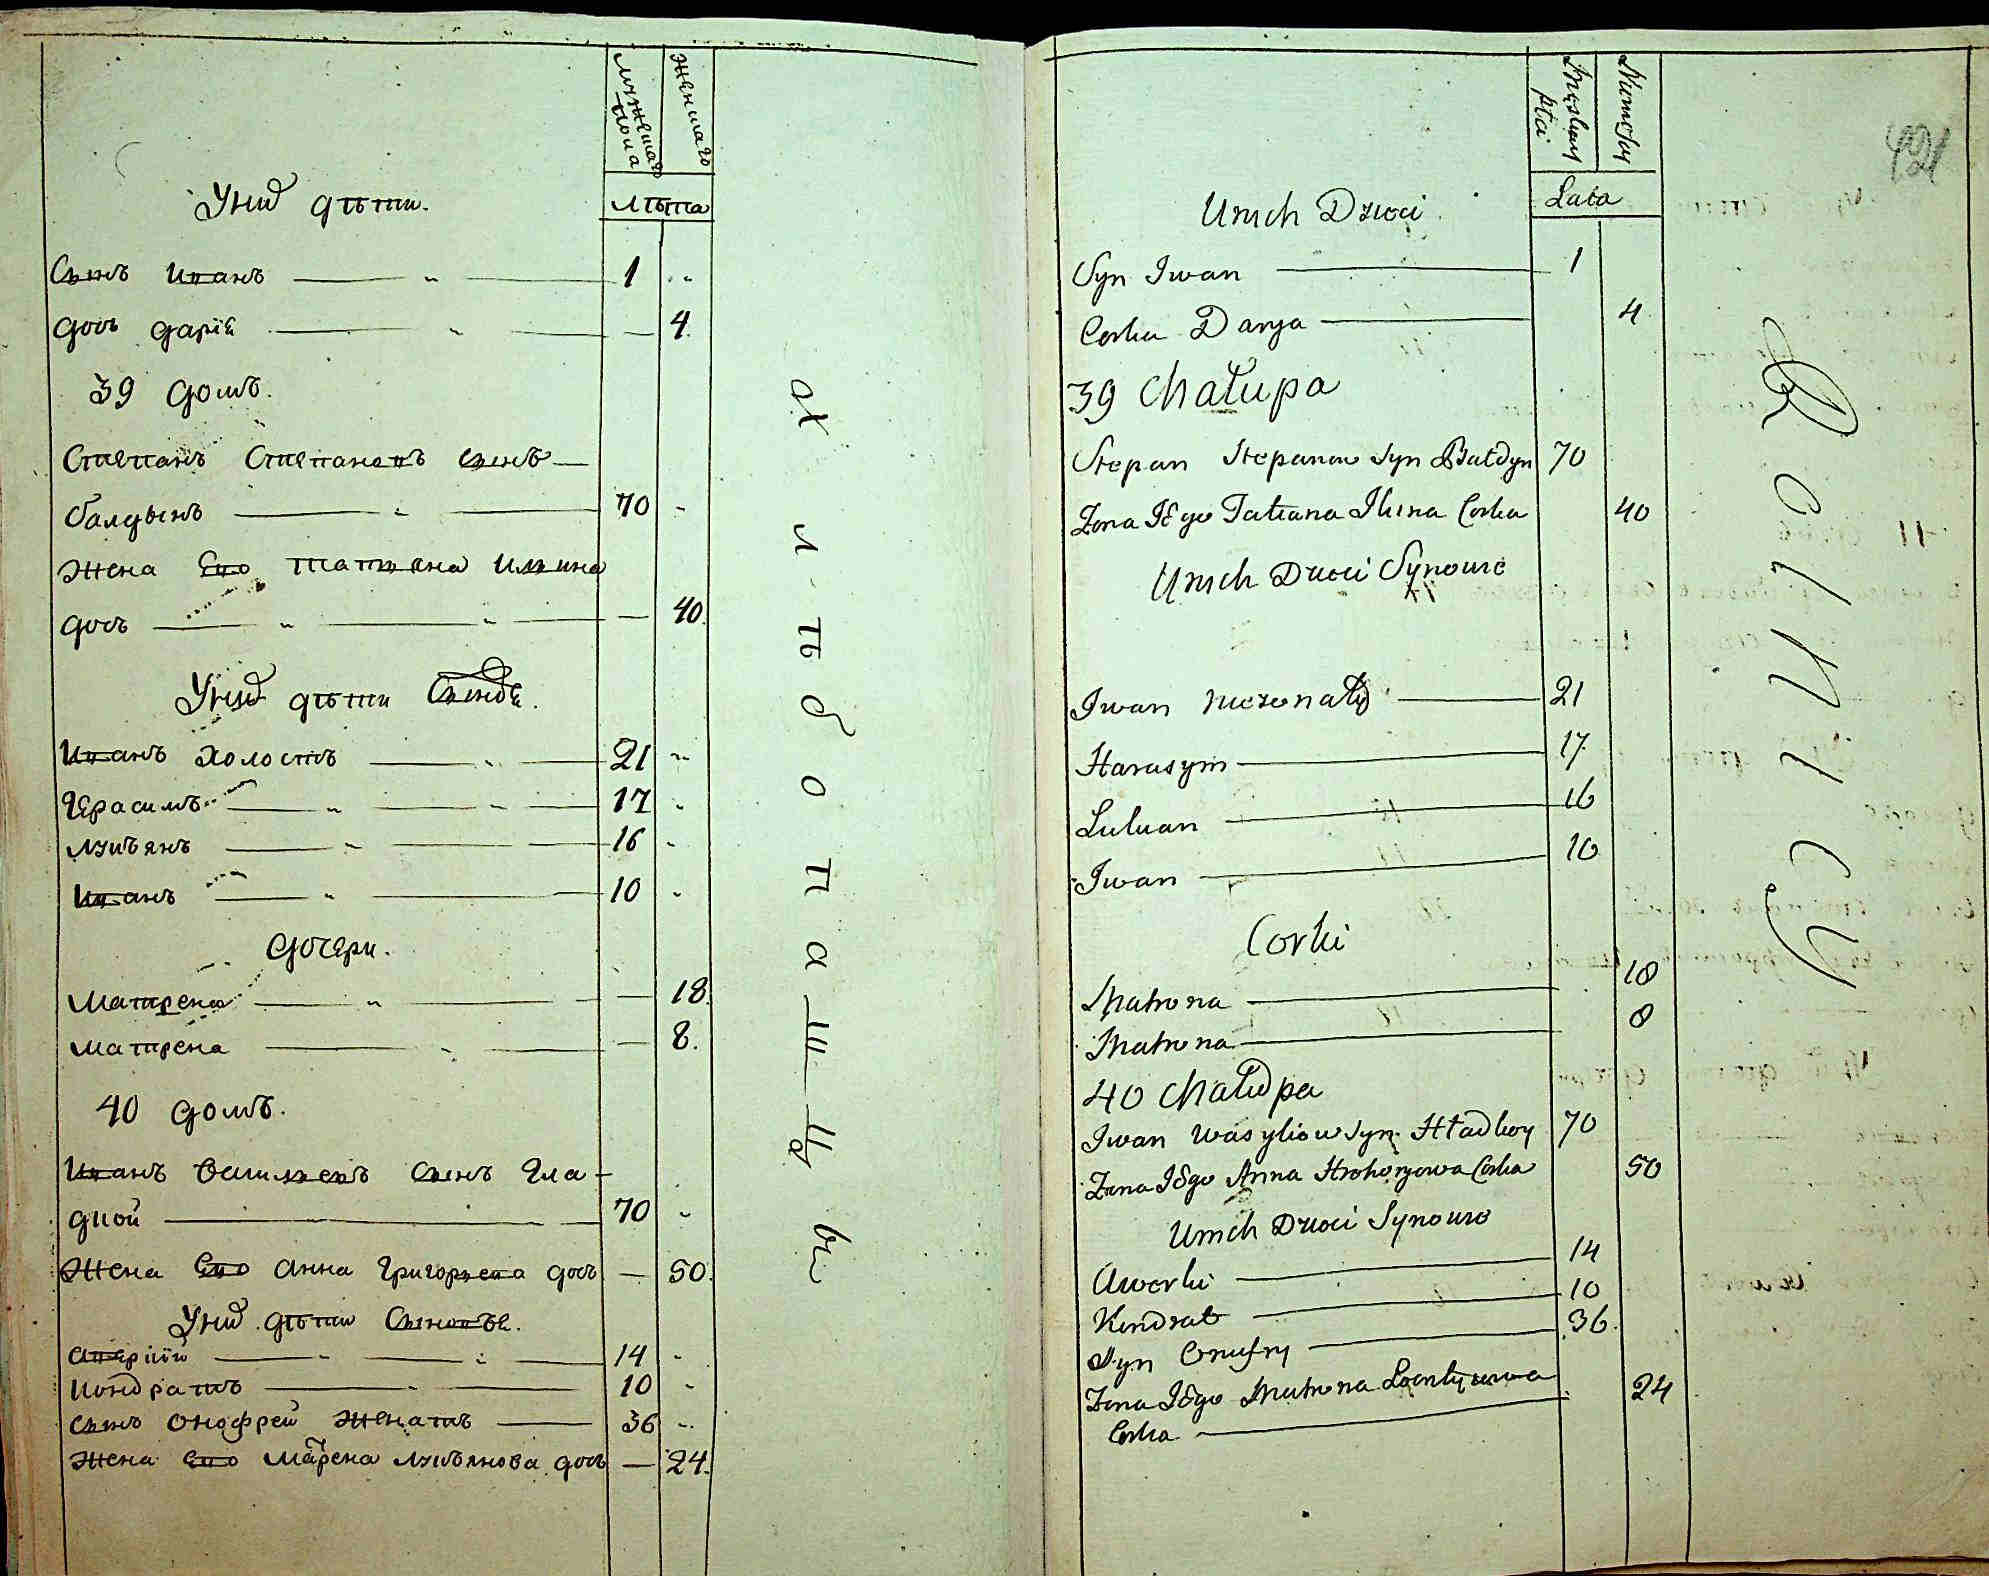 мужеска пола
женскаго
лѣта
У них дѣти.
Сынъ иванъ 1
дочь дарiя 4.
39 домъ.
Степанъ Степановъ сынъ
балдынъ 70
жена ево татьяна ильина
дочь 40.
У них дѣти Сыновья.
иванъ холостъ 21
герасимъ 17
лукьянъ 16
иванъ 10
дочери.
матрена 18.
матрена 8.
40 домъ.
иванъ васильевъ сынъ гла-
дкой 70
жена ево анна григорьева дочь 50.
У них дѣти Сыновья.
аверкiй 14
кондратъ 10
сынъ онофрей женатъ 36
жена ево матрена лукьянова дочь 24.
хлѣбопашцы
Męskiey płci
Lata
421
Unich Dzieci
Syn Iwan 1
Corka Darya 4
39 Chałupa
Stepan Stepanow Syn Bałdyn 70
Zona Iego Tatiana Ilina Corka 40
Unich Dzieci Synowie
Iwan niezonaty 21
Harasym 17
Lukian 16
Iwan 10
Corki
Matrona 18
Matrona 8
40 Chałupa
Iwan Wasyliow Syn Hładkoy 70
Zona Iego Anna Hrohoryowa Corka 50
Unich Dzieci Synowie
Awerki 14
Kondrat 10
Syn Onufry 36
Zona Iego Matrona
Corka 24
Rolnicy